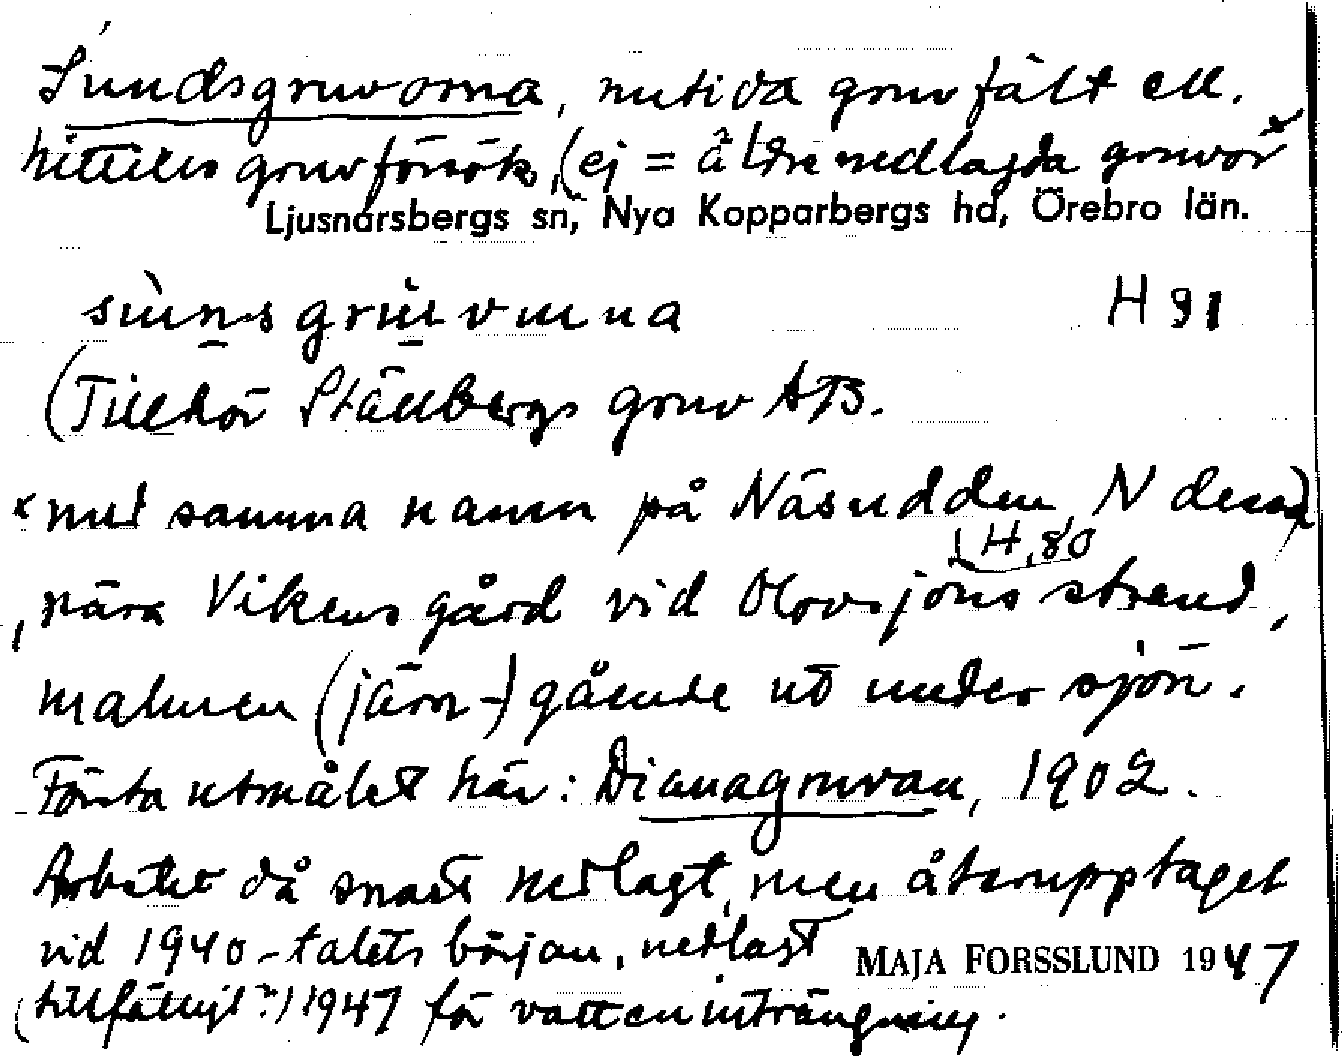 Sundsgruvorna, nutida gruvfält ell.
hittills gruvförsök, (ej = äldre nedlagda gruvor x
Ljusnarsbergs sn, Nya Kopparbergs hd, Örebro län.
H 91
(Tillhör Ställbergs gruv AB.
x med samma namn på Näsudden N dessa)
(H. 80
, nära Vikens gård vid Olovsjöns strand,
malmen (järn-) gående ut under sjön.
Första utmålet här: Dianagruvan, 1902.
Arbetet då snart nedlagt, men återupptaget
vid 1940-talets början, nedlagt
MAJA FORSSLUND 1947
(tillfälligt?) 1947 för vatteninträngning.